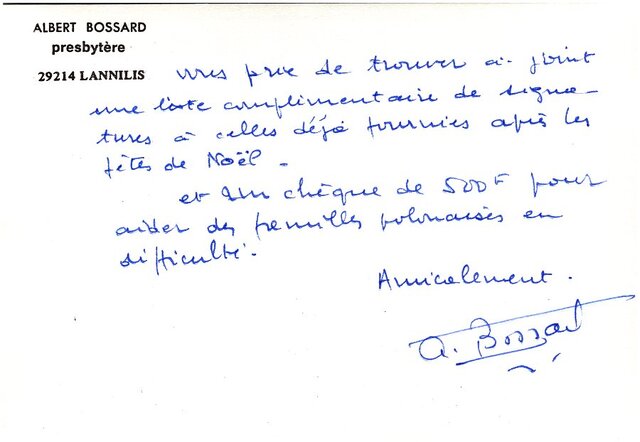 ALBERT BOSSARD
presbytère
29214 LANNILIS
vous prie de trouver ci-joint
une liste complimentaire de signa-
tures à celles déjà fournies après les
fêtes de Noël.
et un chèque de 500F pour
aider des familles polonaises en
difficulté.
Amicalement.
A. Bossard